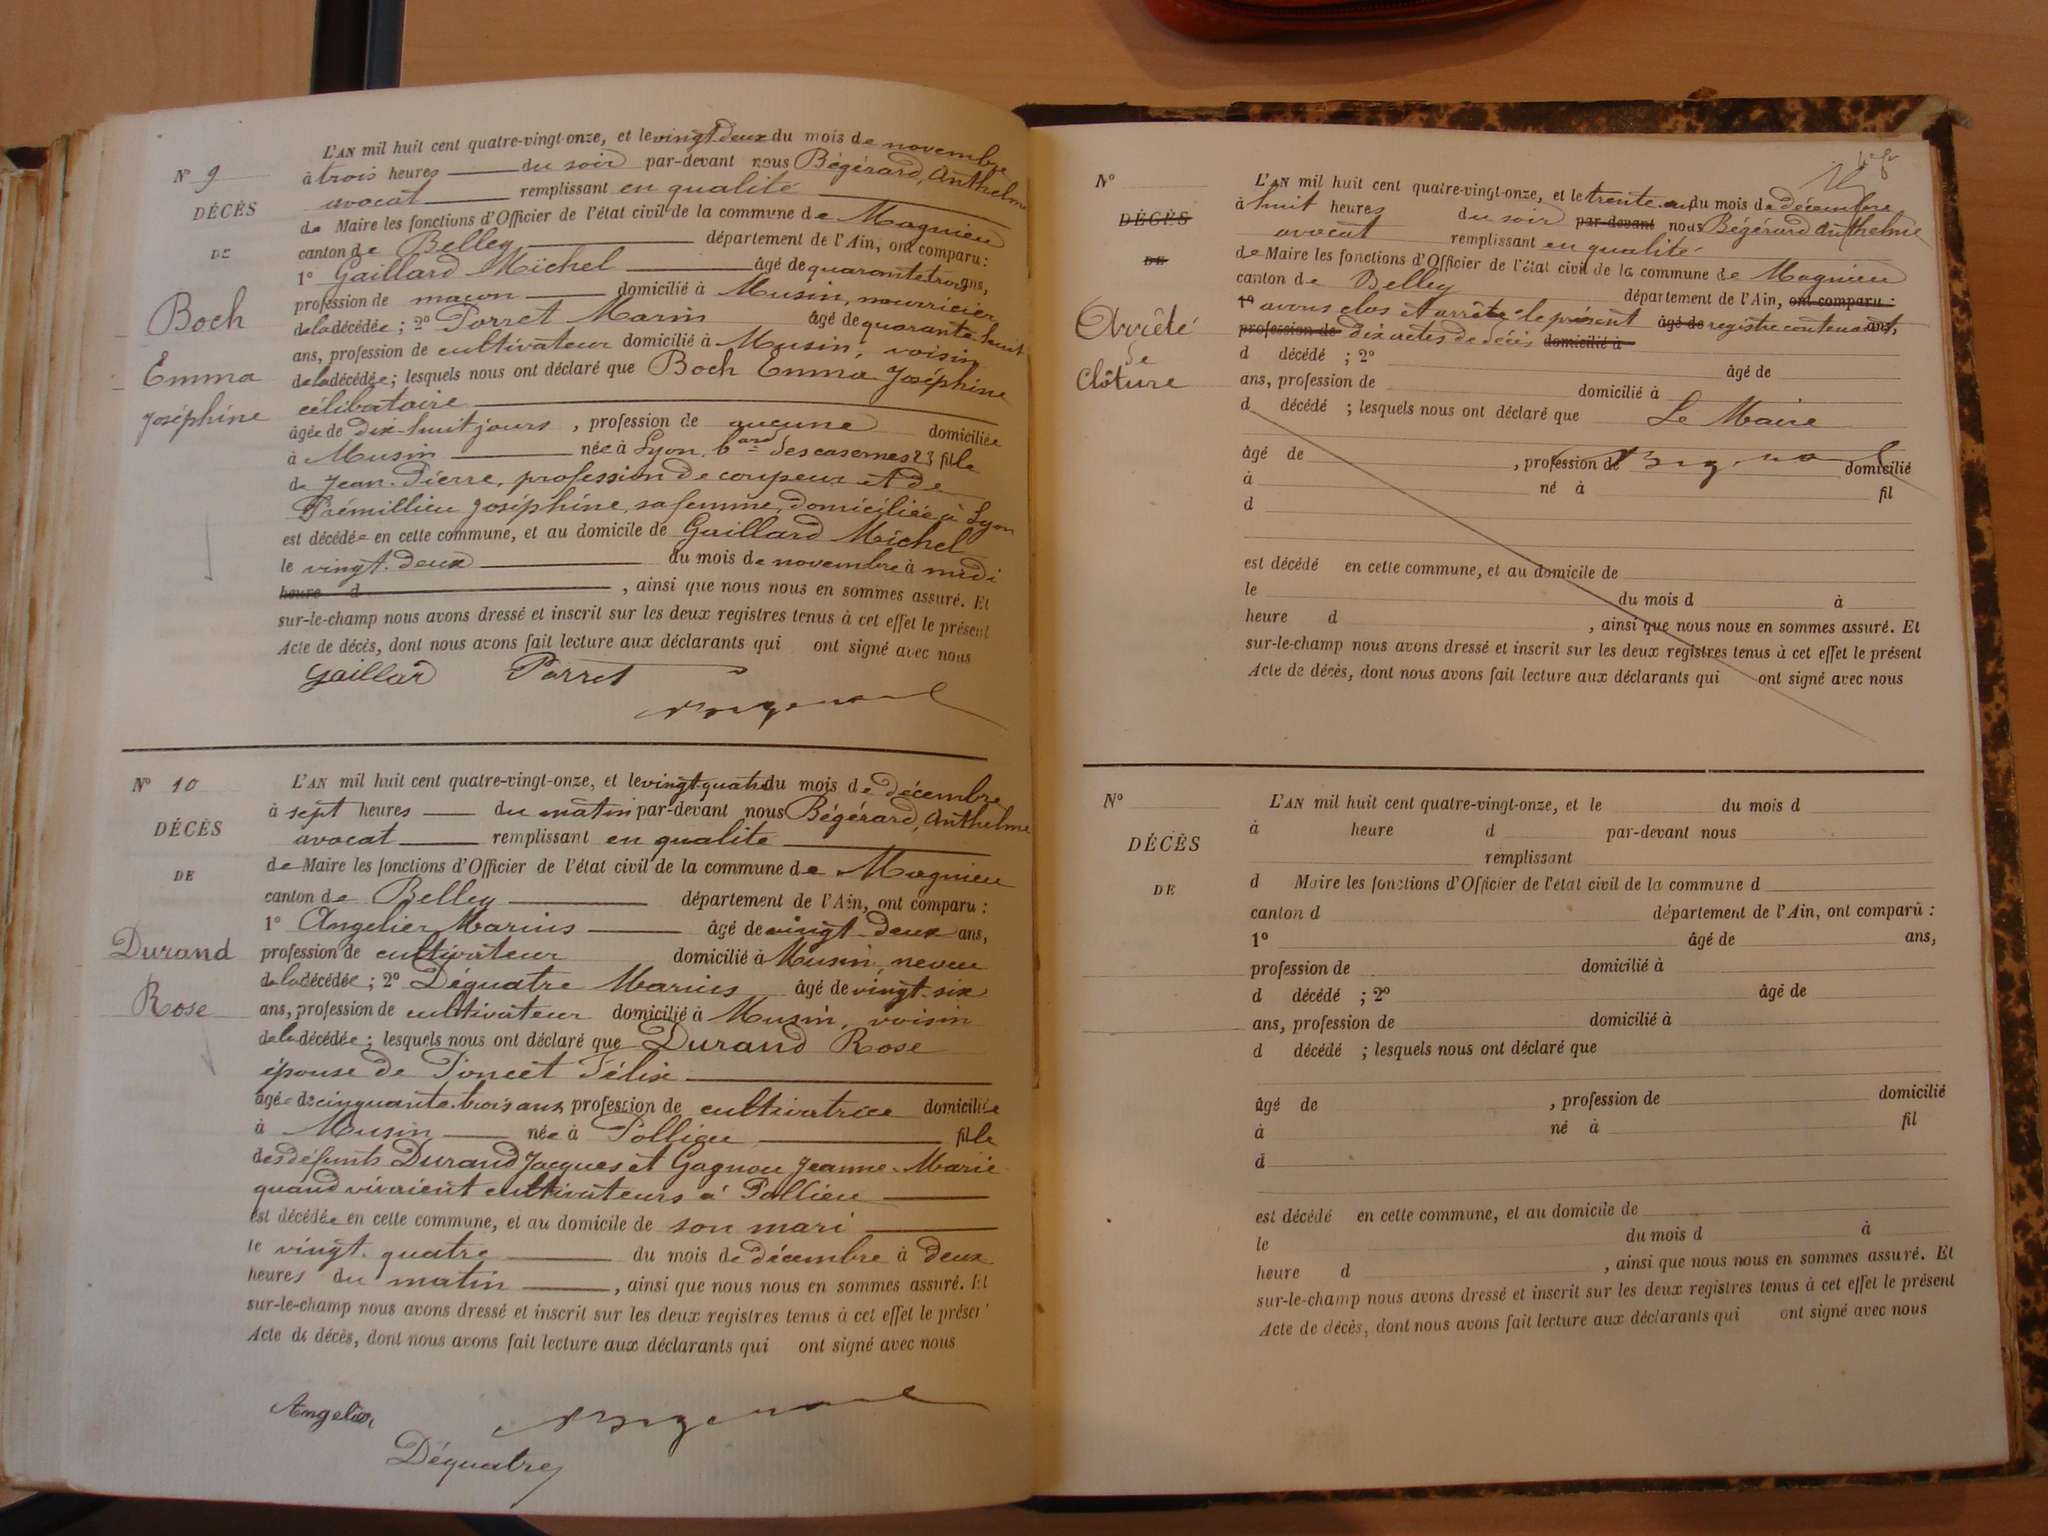 N° 9
DÉCÈS
DE
Boch
Emma
Joséphine
L'AN mil huit cent quatre-vingt-onze, et le vingt deux du mois de novembre
à trois heures du soir par-devant nous Bégérard, Anthelme
avocat remplissant en qualité
de Maire les fonctions d'Officier de l'état civil de la commune de Magnieu
canton de Belley département de l'Ain, ont comparu :
1° Gaillard Michel âgé de quarante trois ans,
profession de maçon domicilié à Musin, nourricier
de la décédée ; 2° Porret Marin âgé de quarante-huit
ans, profession de cultivateur domicilié à Musin, voisin
de la décédée ; lesquels nous ont déclaré que Boch Emma Joséphine
célibataire
âgée de dix-huit jours, profession de aucune domiciliée
à Musin née à Lyon, bard des casernes 23 fille
de Jean-Pierre, profession de coupeur et de
Prémillieu Joséphine, sa femme, domiciliée à Lyon
est décédée en cette commune, et au domicile de Gaillard Michel
le vingt-deux du mois de novembre à midi
heure d , ainsi que nous nous en sommes assuré. Et
sur-le-champ nous avons dressé et inscrit sur les deux registres tenus à cet effet le présent
Acte de décès, dont nous avons fait lecture aux déclarants qui ont signé avec nous
Gaillard Porret
N° 10
DÉCÈS
DE
Durand
Rose
L'AN mil huit cent quatre-vingt-onze, et le vingt-quatre du mois de décembre
à sept heures du matin par-devant nous Bégérard, Anthelme
avocat remplissant en qualité
de Maire les fonctions d'Officier de l'état civil de la commune de Magnieu
canton de Belley département de l'Ain, ont comparu :
1° Angelier Marius âgé de vingt-deux ans,
profession de cultivateur domicilié à Musin, neveu
de la décédée ; 2° Déquatre Marius âgé de vingt-six
ans, profession de cultivateur domicilié à Musin, voisin
de la décédée ; lesquels nous ont déclaré que Durand Rose
épouse de Poncet Félix
âgée de cinquante-trois ans, profession de cultivatrice domiciliée
à Musin née à Pollieu fille
des défunts Durand Jacques et Gagnou Jeanne-Marie
quand vivaient cultivateurs à Pollieu
est décédée en cette commune, et au domicile de son mari
le vingt-quatre du mois de décembre à deux
heures du matin , ainsi que nous nous en sommes assuré. Et
sur-le-champ nous avons dressé et inscrit sur les deux registres tenus à cet effet le présent
Acte de décès, dont nous avons fait lecture aux déclarants qui ont signé avec nous
Angelier
Déquatre
N°
DÉCÈS
DE
Arrêté
de
Clôture
L'AN mil huit cent quatre-vingt-onze, et le trente un du mois de décembre
à huit heures du soir par-devant nous Bégérard Anthelme
avocat remplissant en qualité
de Maire les fonctions d'Officier de l'état civil de la commune de Magnieu
canton de Belley département de l'Ain, ont comparu :
1° avons clos et arrêté le présent âgé de registre contenant ans,
profession de dix actes de décès domicilié à
d décédé ; 2° âgé de
ans, profession de domicilié à
d décédé ; lesquels nous ont déclaré que Le Maire
âgé de , profession de domicilié
à né à fil
d
est décédé en cette commune, et au domicile de
le du mois d à
heure d , ainsi que nous nous en sommes assuré. Et
sur-le-champ nous avons dressé et inscrit sur les deux registres tenus à cet effet le présent
Acte de décès, dont nous avons fait lecture aux déclarants qui ont signé avec nous
N°
DÉCÈS
DE
L'AN mil huit cent quatre-vingt-onze, et le du mois d
à heure d par-devant nous
remplissant
d Maire les fonctions d'Officier de l'état civil de la commune d
canton d département de l'Ain, ont comparu :
1° âgé de ans,
profession de domicilié à
d décédé ; 2° âgé de
ans, profession de domicilié à
d décédé ; lesquels nous ont déclaré que
âgé de , profession de domicilié
à né à fil
d
est décédé en cette commune, et au domicile de
le du mois d à
heure d , ainsi que nous nous en sommes assuré. Et
sur-le-champ nous avons dressé et inscrit sur les deux registres tenus à cet effet le présent
Acte de décès, dont nous avons fait lecture aux déclarants qui ont signé avec nous